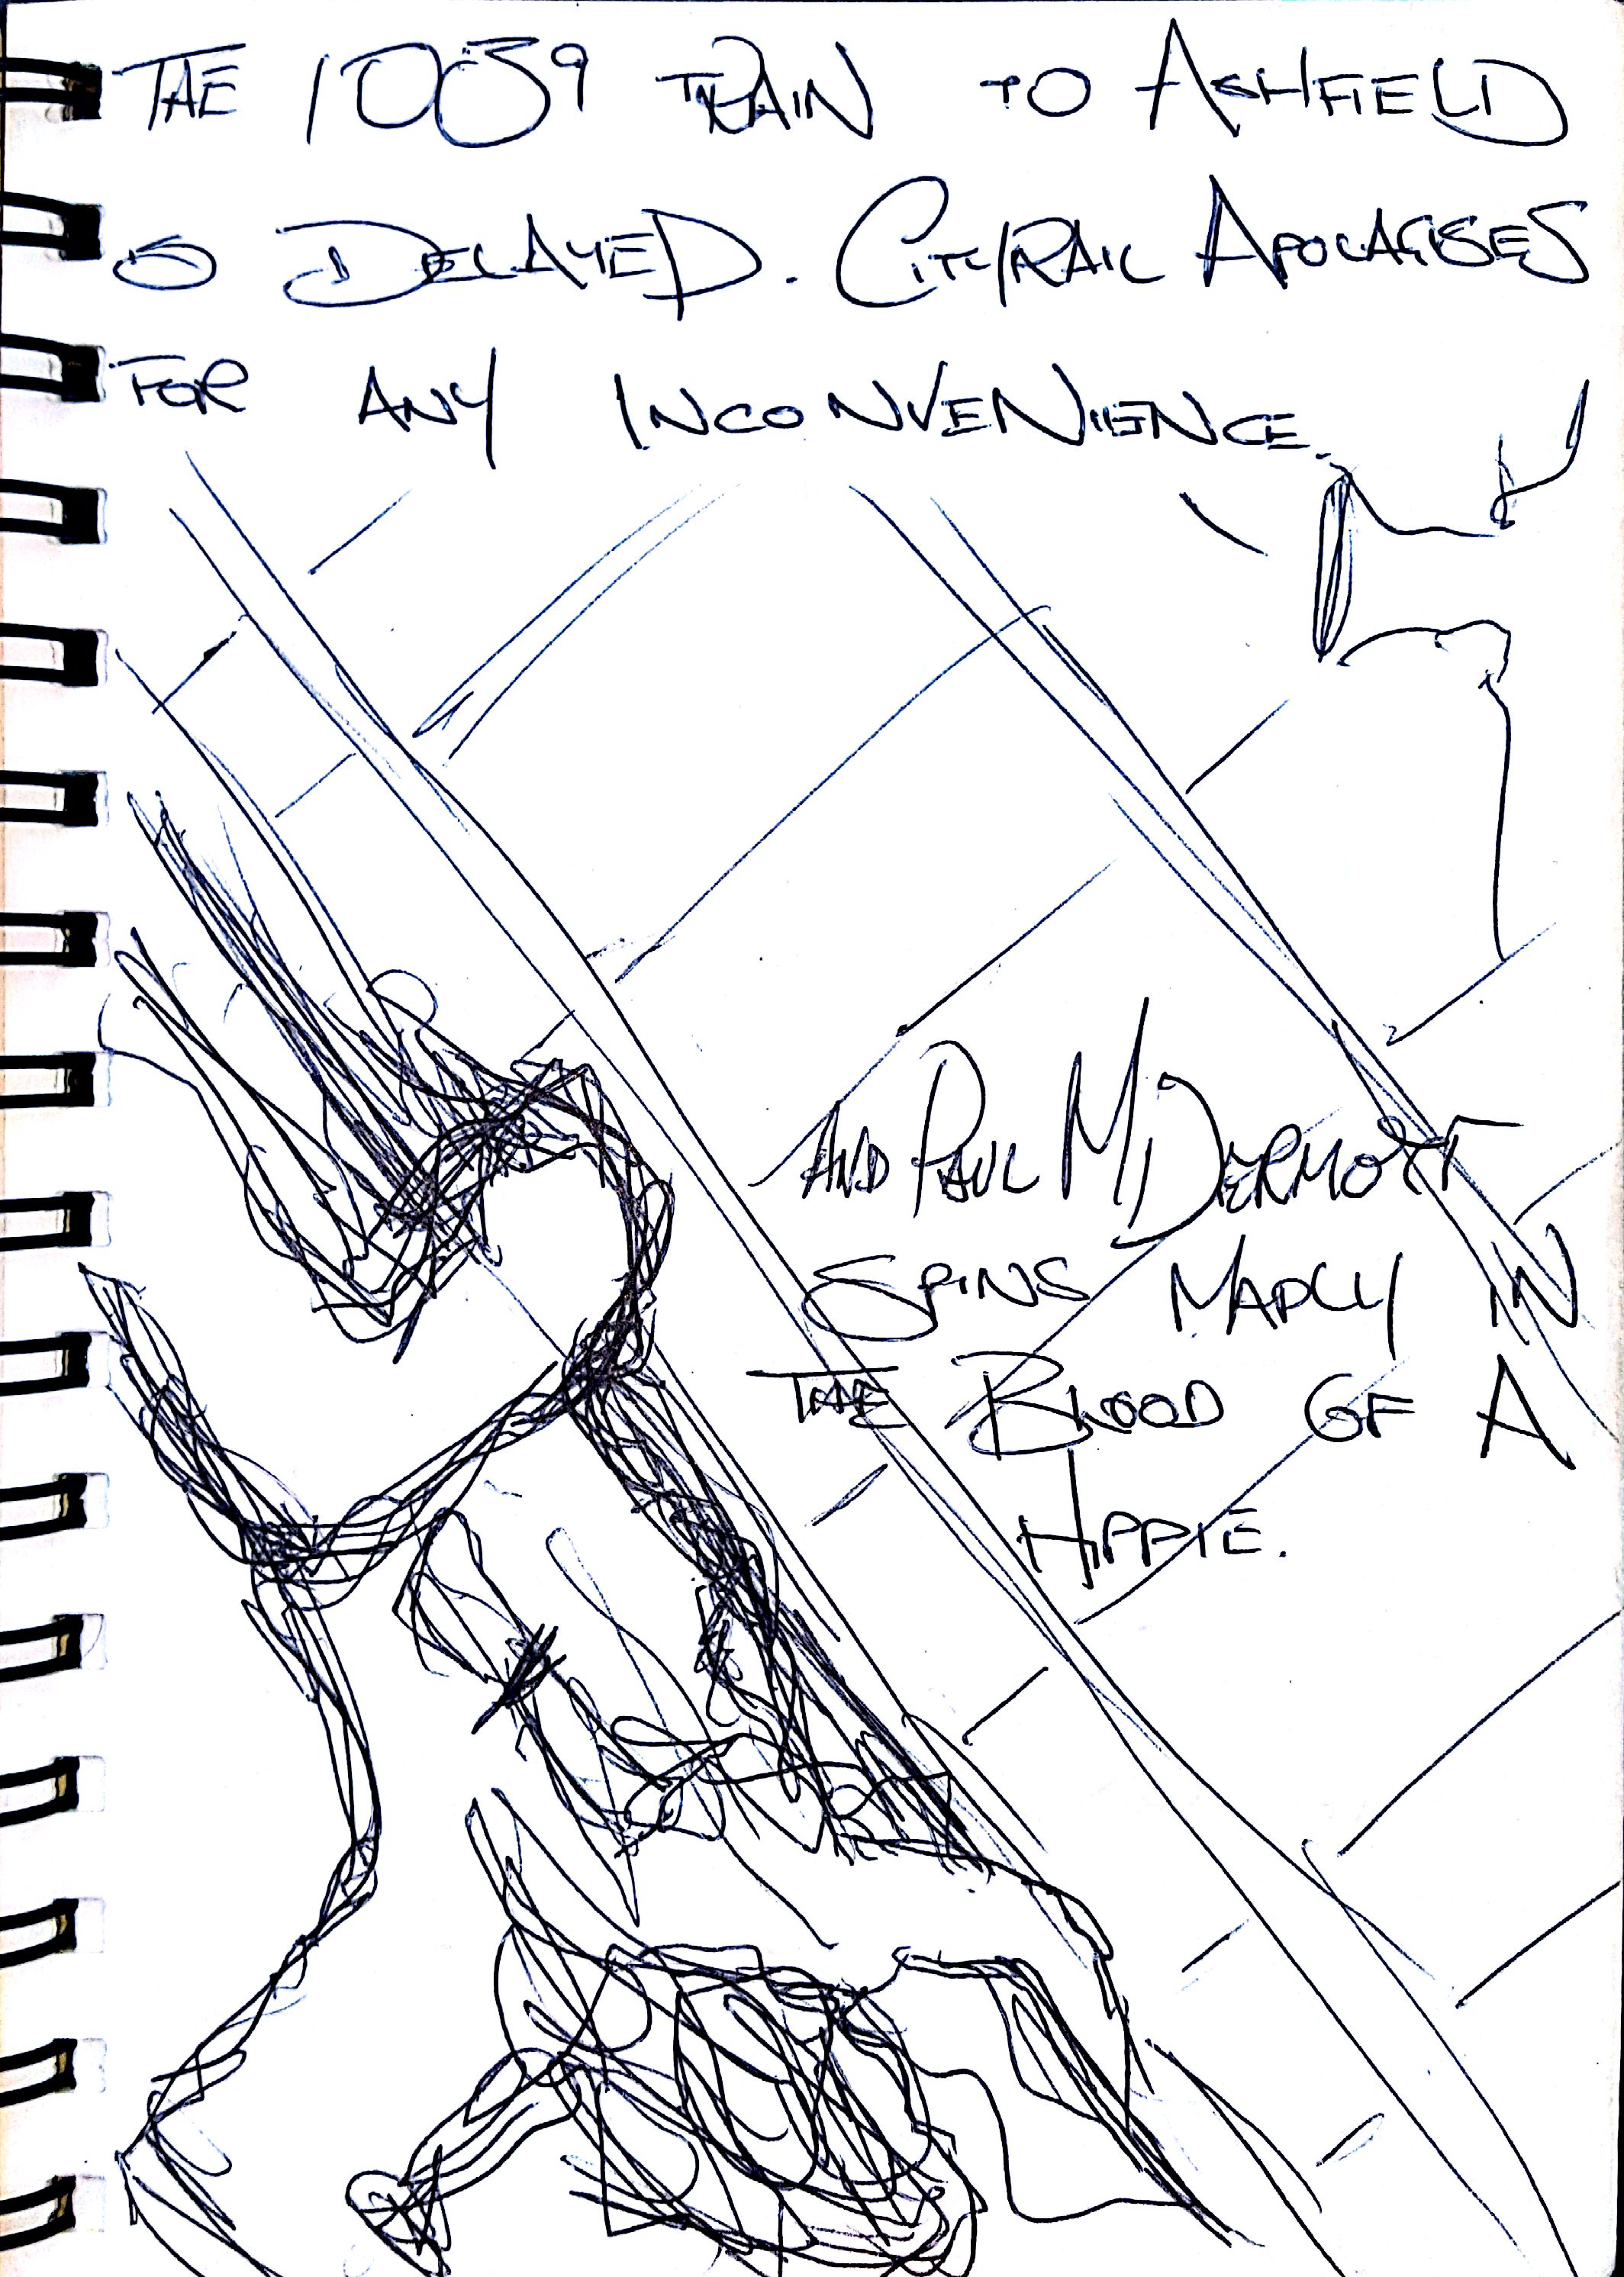 THE 1039 TRAIN TO ASHFIELD
IS DELAYED. CITYRAIL APOLAGISES
FOR ANY INCONVENIENCE.
AND PAUL McDERMOTT
SPINS MADLY IN
THE BLOOD OF A
HIPPIE.